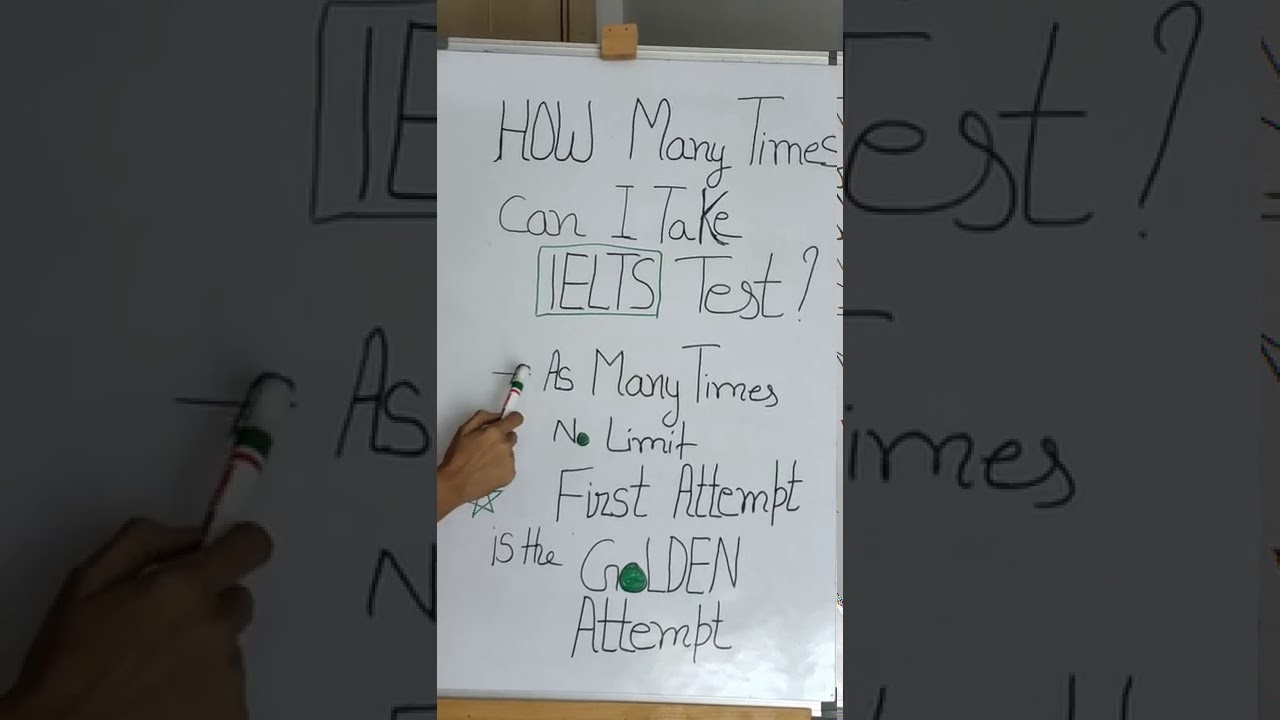 HOW Many Times
Can I Take
IELTS Test?
As Many Times
No Limit
First Attempt
is the GoLDEN
Attempt